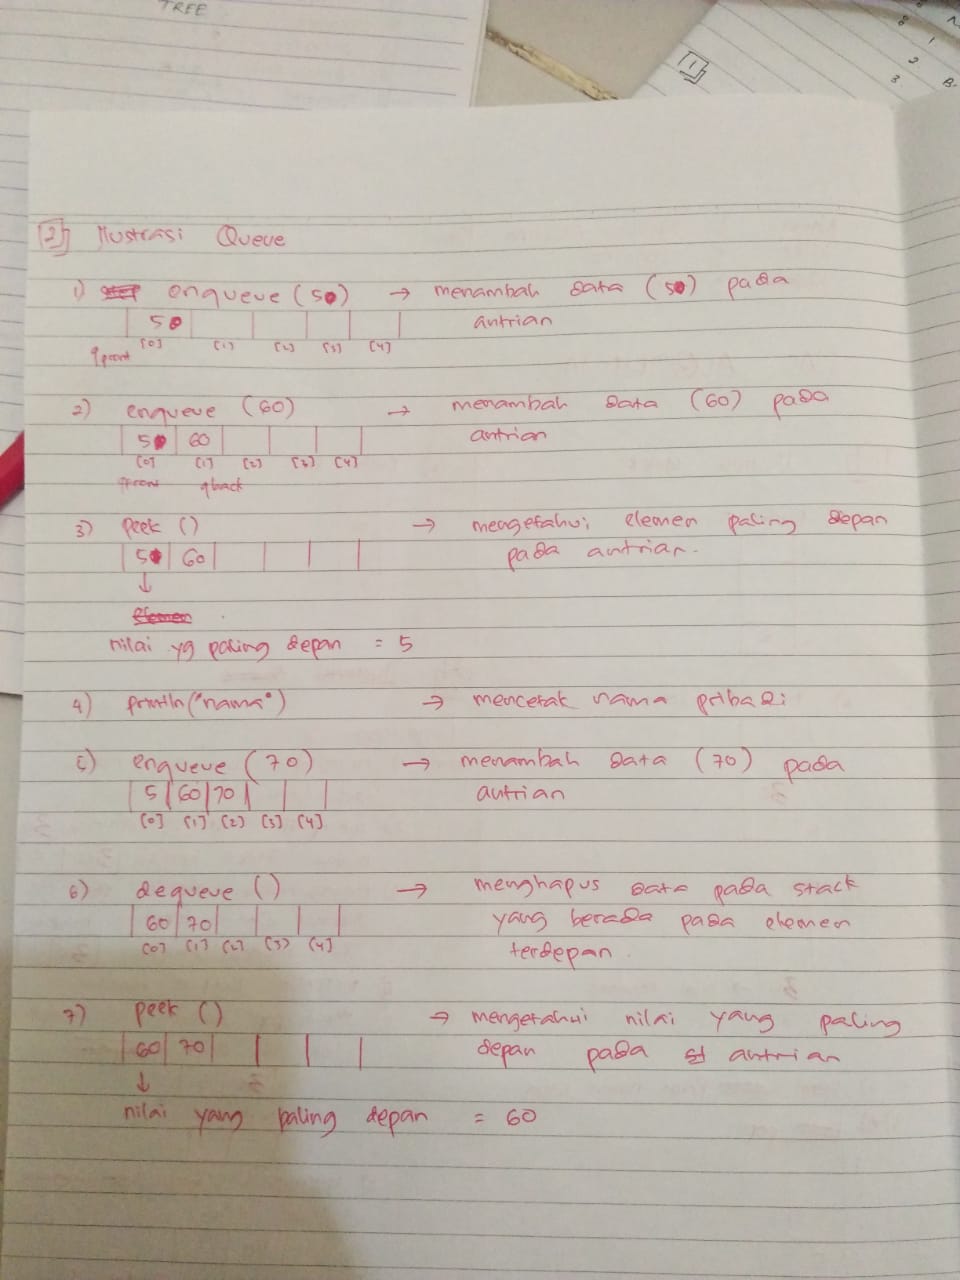 TREE
1
2
3.
B.
2] Ilustrasi Queue
1) enqueue (50) → menambah data (50) pada
50 antrian
[0] [1] [2] [3] [4]
qfront
2) enqueue (60) → menambah data (60) pada
50 60 antrian
[0] [1] [2] [3] [4]
qfront qback
3) peek () → mengetahui elemen paling depan
50 60 pada antrian.
↓
nilai yg paling depan = 5
4) println("nama") → mencetak nama pribadi
5) enqueue (70) → menambah data (70) pada
5 60 70 antrian
[0] [1] [2] [3] [4]
6) dequeue () → menghapus data pada stack
60 70 yang berada pada elemen
[0] [1] [2] [3] [4] terdepan.
7) peek () → mengetahui nilai yang paling
60 70 depan pada antrian
↓
nilai yang paling depan = 60